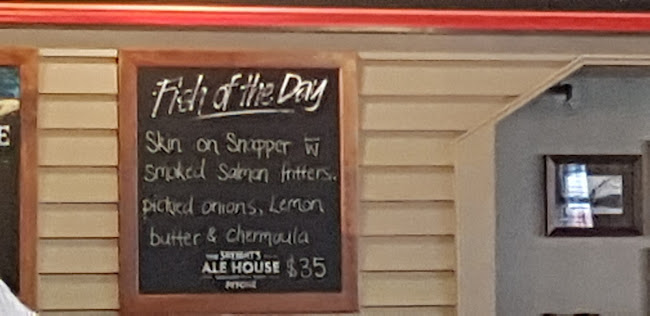 Fish of the Day
Skin on Snapper w̅
Smoked Salmon fritters,
pickled onions, Lemon
butter & chermoula
THE SPEIGHT'S
ALE HOUSE $35
PETONE
E